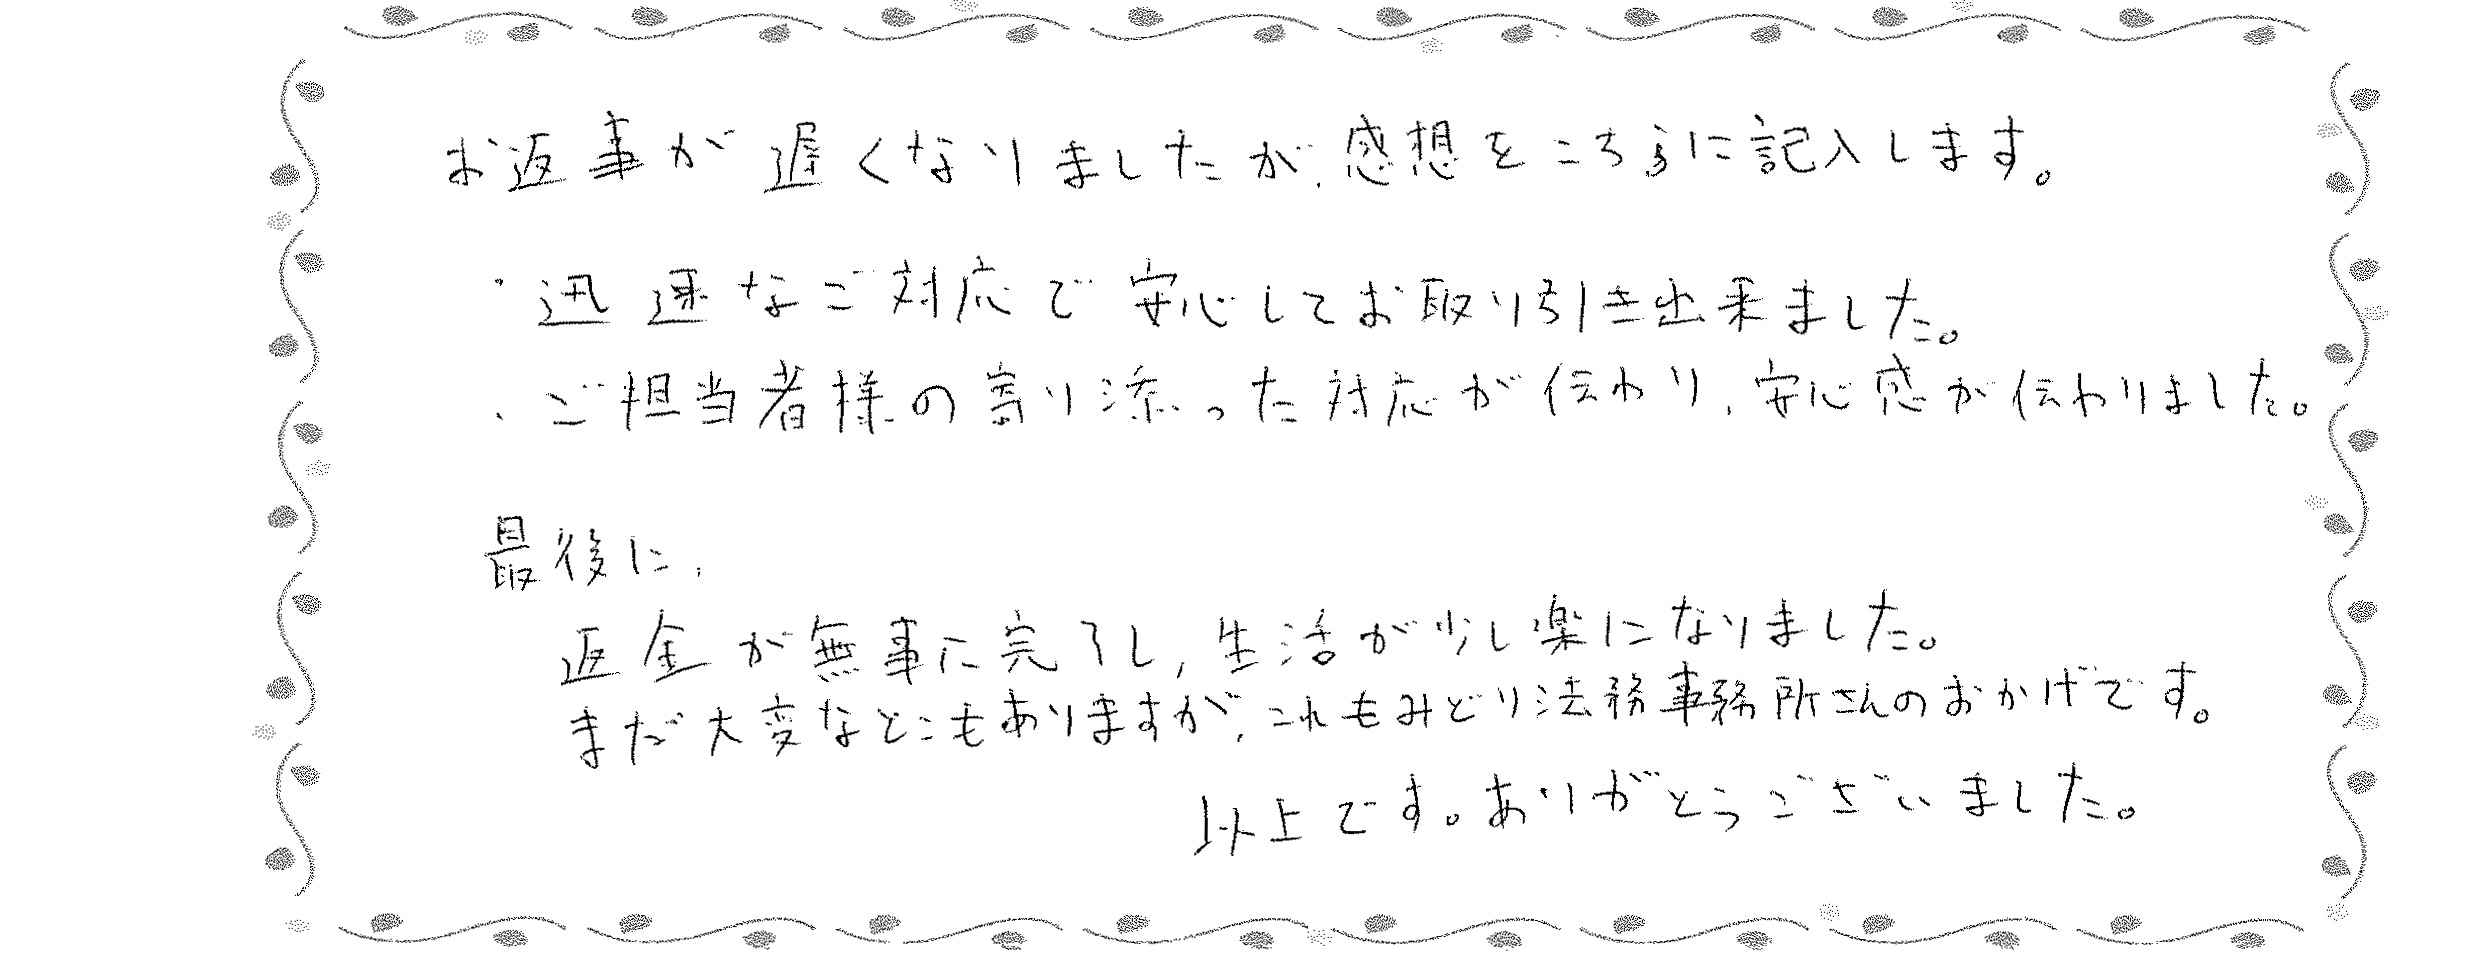 お返事が遅くなりましたが、感想をこちらに記入します。
・迅速なご対応で安心してお取り引き出来ました。
・ご担当者様の寄り添った対応が伝わり、安心感が伝わりました。
最後に、
返金が無事に完了し、生活が少し楽になりました。
まだ大変なとこもありますが、これもみどり法務事務所さんのおかげです。
以上です。ありがとうございました。